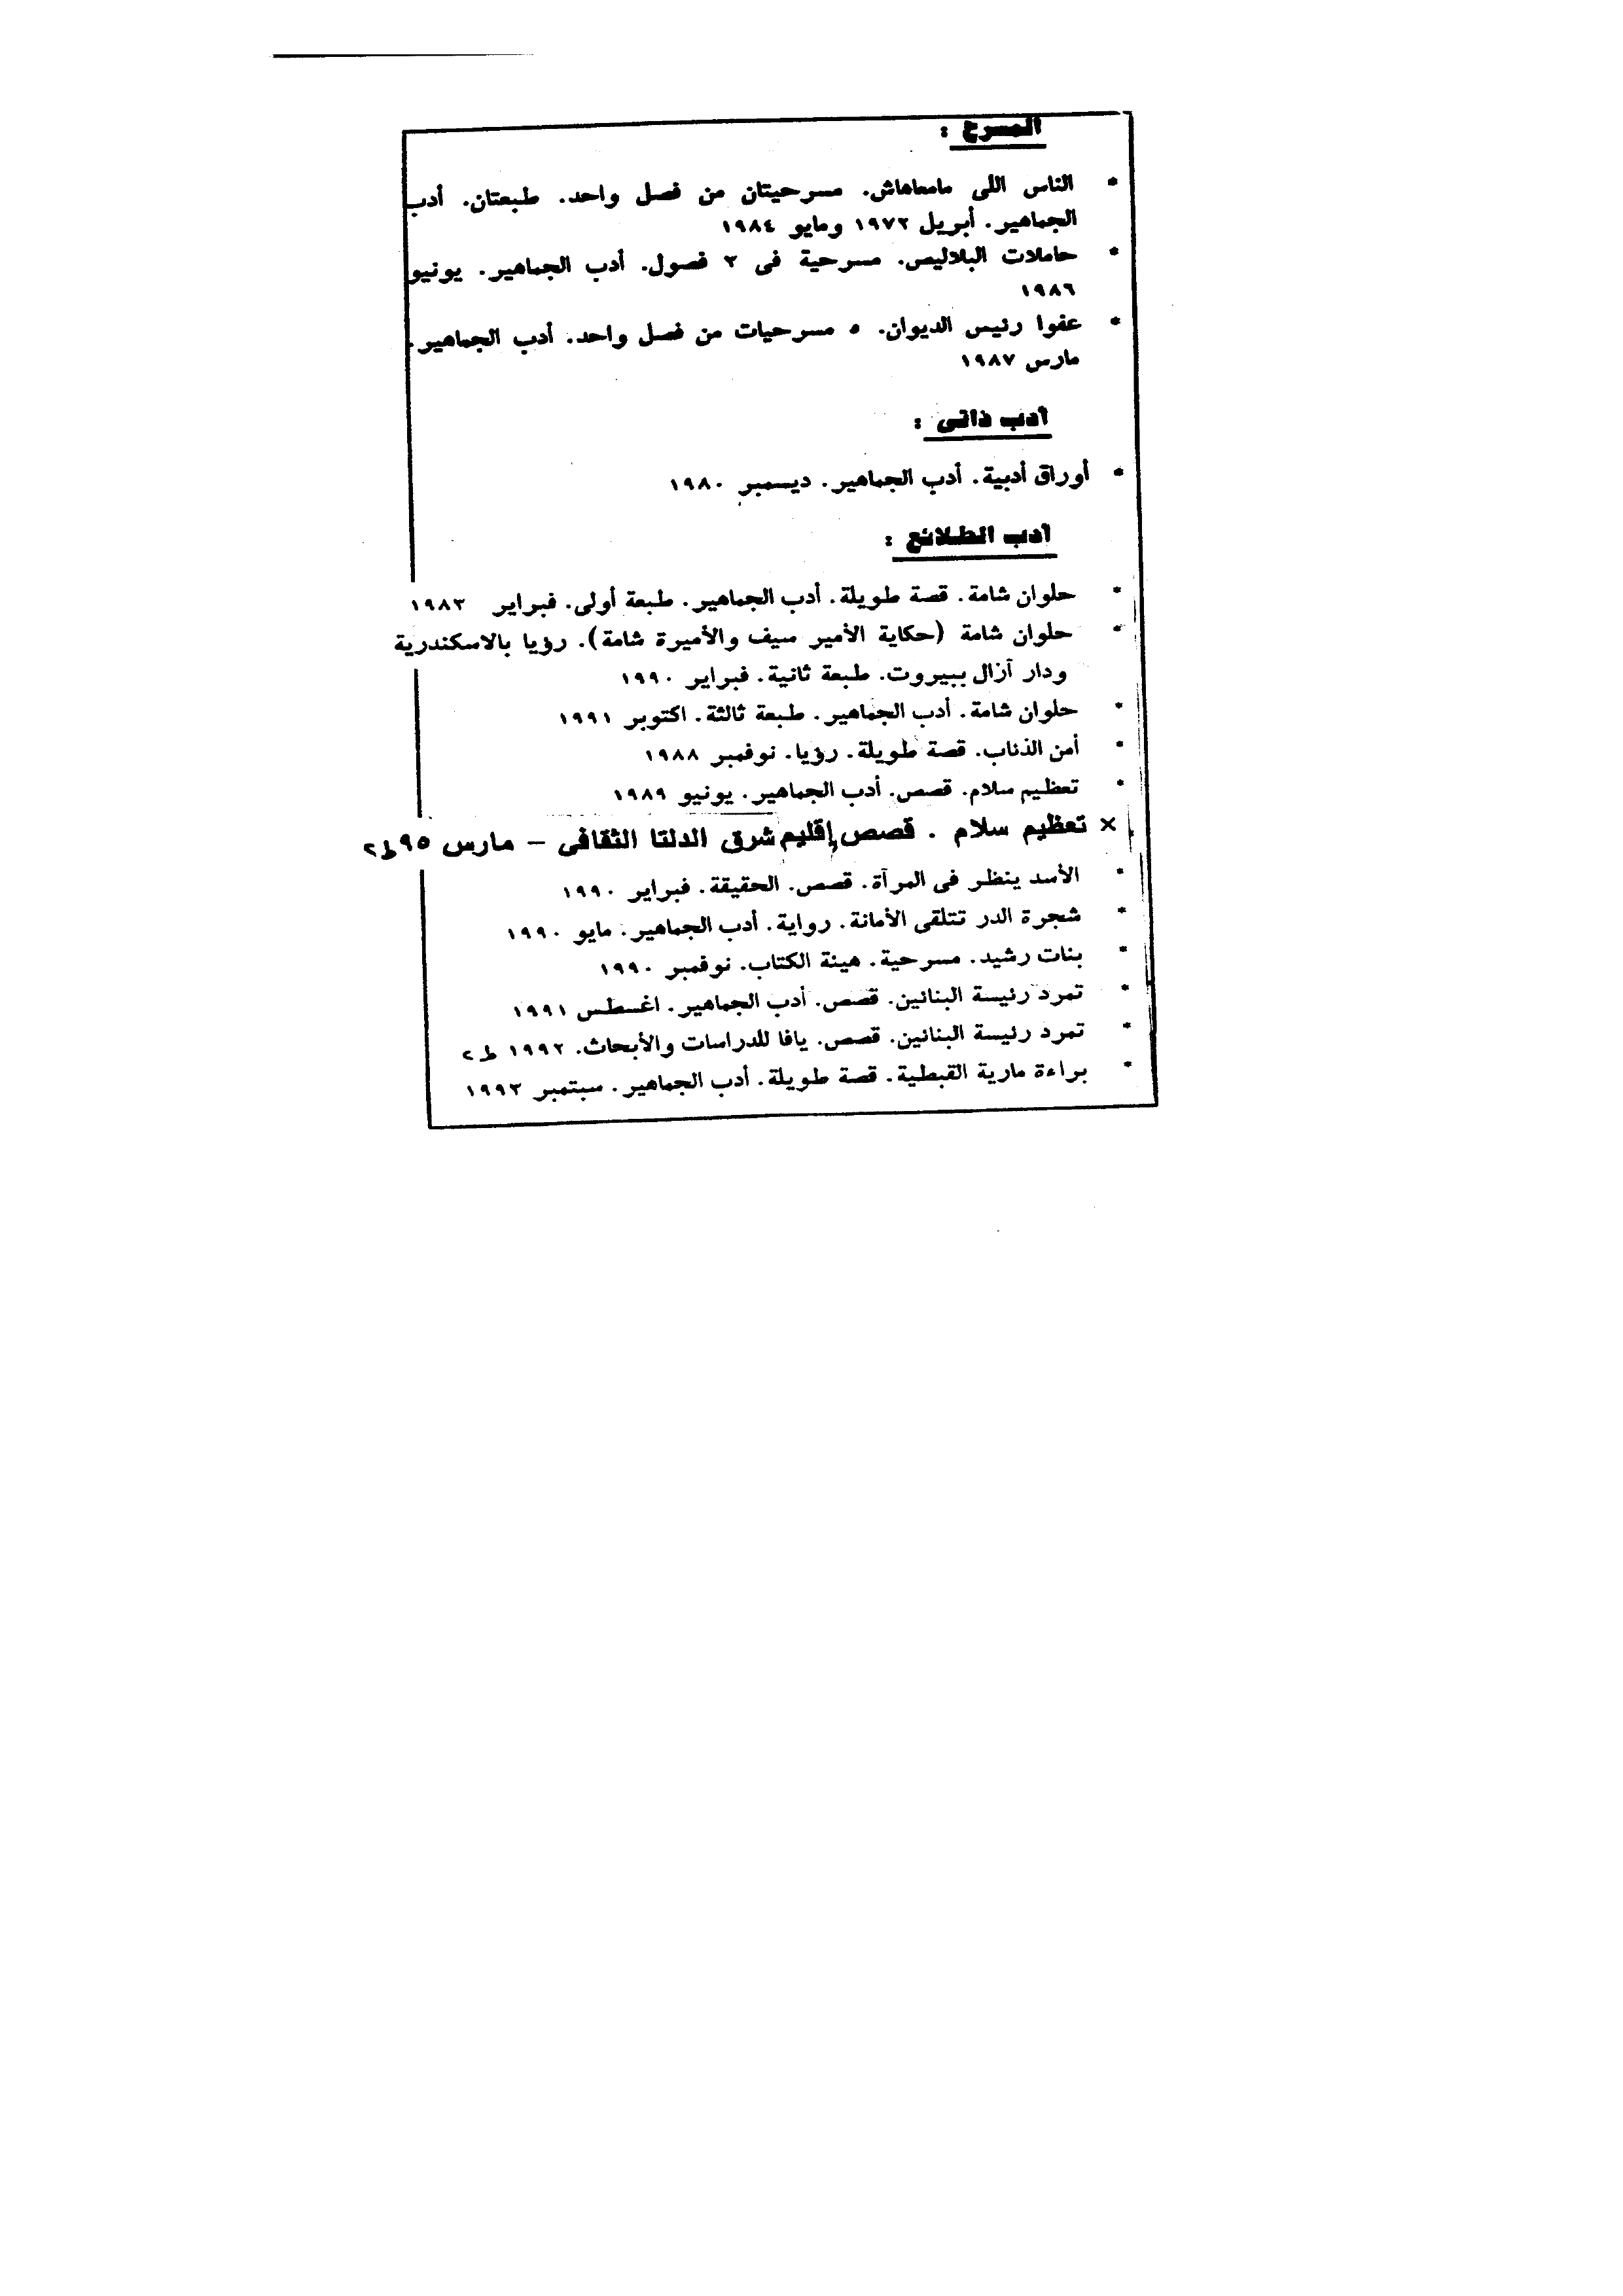 المسرح :
* الناس اللى مامعاهاش. مسرحيتان من فصل واحد. طبعتان. أدب
الجماهير. أبريل ١٩٧٢ ومايو ١٩٨٤
* حاملات البلاليص. مسرحية فى ٣ فصول. أدب الجماهير. يونيو
١٩٨٦
* عفوا رئيس الديوان. ٥ مسرحيات من فصل واحد. أدب الجماهير.
مارس ١٩٨٧
أدب ذاتى :
* أوراق أدبية. أدب الجماهير. ديسمبر ١٩٨٠
أدب الطلائع :
* حلوان شامة. قصة طويلة. أدب الجماهير. طبعة أولى. فبراير ١٩٨٣
* حلوان شامة (حكاية الأمير سيف والأميرة شامة). رؤيا بالاسكندرية
ودار آزال ببيروت. طبعة ثانية. فبراير ١٩٩٠
* حلوان شامة. أدب الجماهير. طبعة ثالثة. اكتوبر ١٩٩١
* أمن الذئاب. قصة طويلة. رؤيا. نوفمبر ١٩٨٨
* تعظيم سلام. قصص. أدب الجماهير. يونيو ١٩٨٩
× تعظيم سلام . قصص إقليم شرق الدلتا الثقافى – مارس ٩٥ ط٢
* الأسد ينظر فى المرآة. قصص. الحقيقة. فبراير ١٩٩٠
* شجرة الدر تتلقى الأمانة. رواية. أدب الجماهير. مايو ١٩٩٠
* بنات رشيد. مسرحية. هيئة الكتاب. نوفمبر ١٩٩٠
* تمرد رئيسة البنائين. قصص. أدب الجماهير. اغسطس ١٩٩١
* تمرد رئيسة البنائين. قصص. يافا للدراسات والأبحاث. ١٩٩٢ ط٢
* براءة مارية القبطية. قصة طويلة. أدب الجماهير. سبتمبر ١٩٩٢